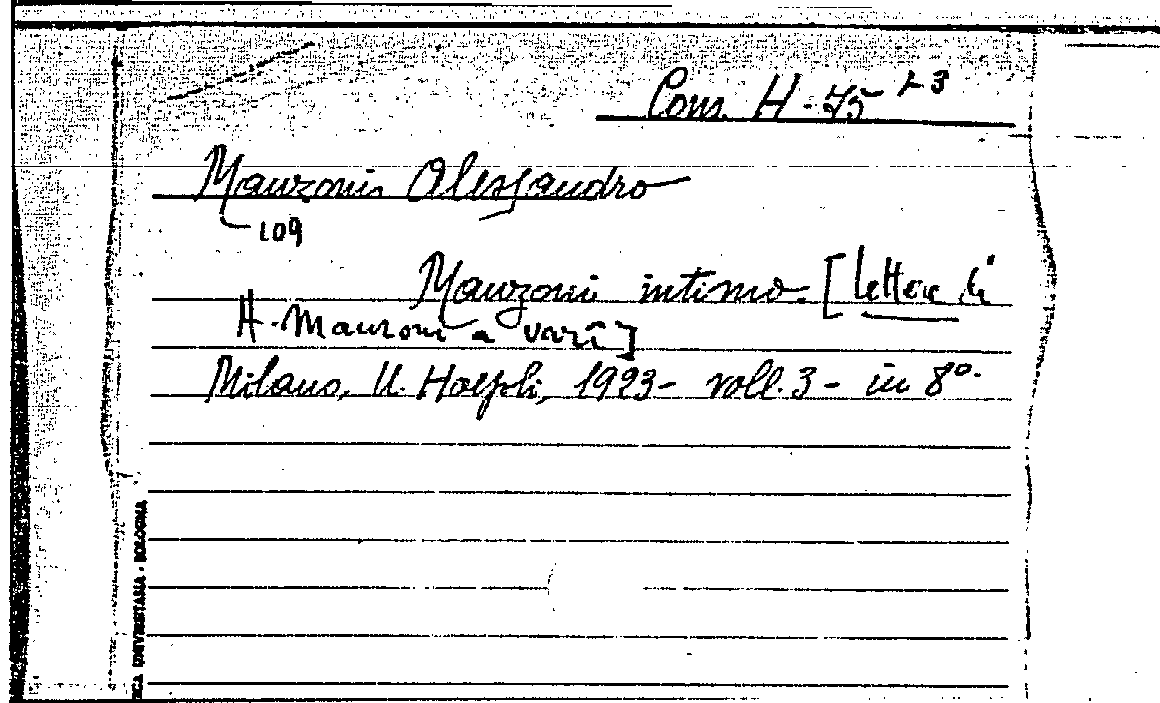 Cons. H-75 1-3
Manzoni Alessandro
109
Manzoni intimo. [lettere di
A. Manzoni a varî]
Milano, U. Hoepli, 1923- voll. 3 - in 8º.
ECA UNIVERSITARIA - BOLOGNA